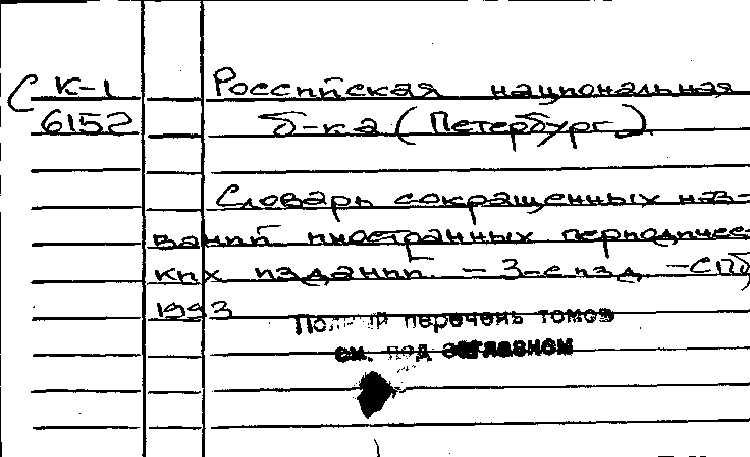 С К-1 Российская национальная
6152 б-ка (Петербург).
Словарь сокращенных наз-
ваний иностранных периодичес-
ких изданий. - 3-е изд. - СПб,
1993
Полный перечень томов
см. под заглавном